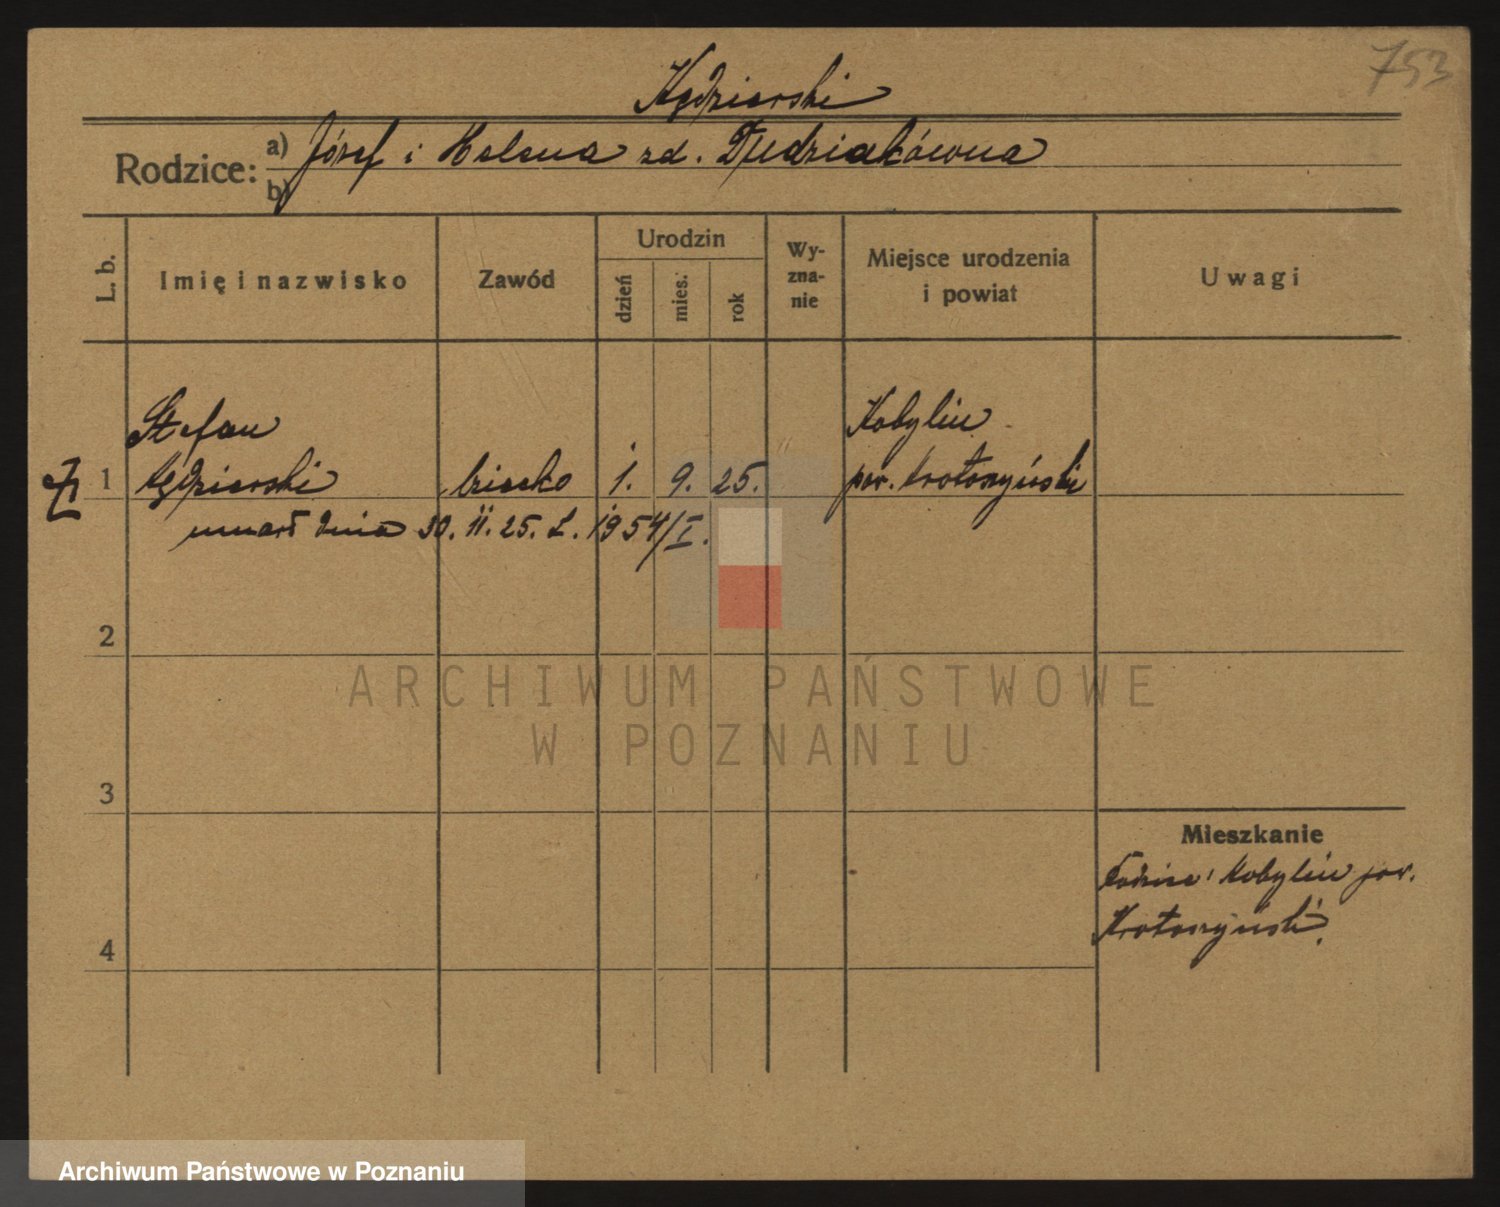 753
Kędzierski
Rodzice: a) Józef i Helena zd. Dudziakówna
b)
L. b. Imię i nazwisko Zawód Urodzin dzień mies. rok Wy-zna-nie Miejsce urodzenia i powiat Uwagi
Stefan Kobylin
1 Kędzierski dziecko 1. 9. 25. pow. Krotoszyński
umarł dnia 30. 11. 25. L. 1954/I.
2
ARCHIWUM PAŃSTWOWE
W POZNANIU
3
Mieszkanie
Rodzice: Kobylin pow.
Krotoszyński.
4
Archiwum Państwowe w Poznaniu